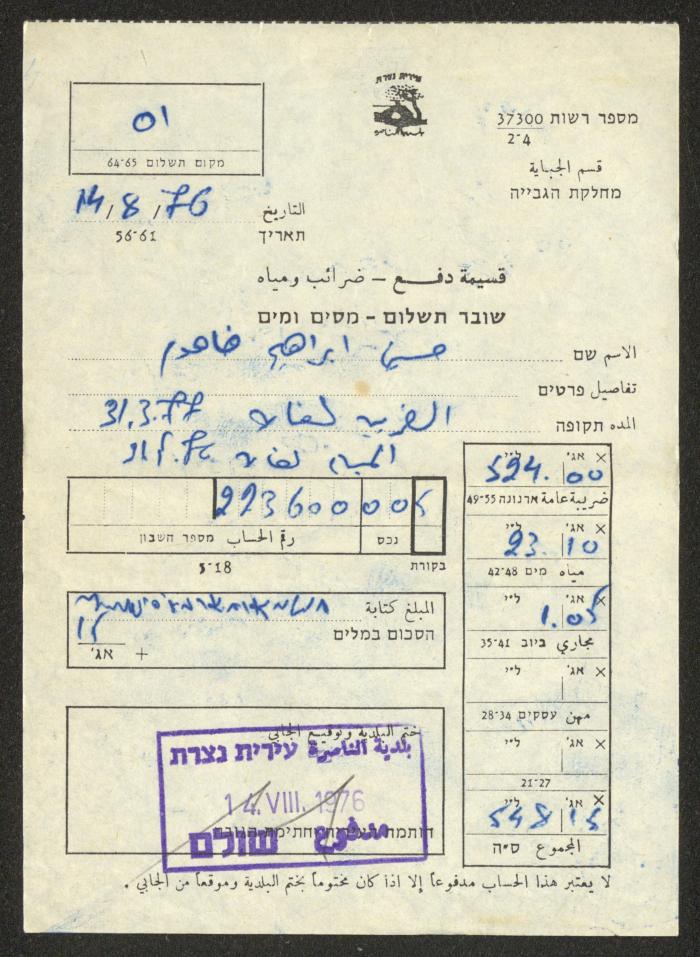 עירית נצרת
بلدية الناصرة
מספר רשות 37300
2-4
قسم الجباية
מחלקת הגבייה
01
מקום תשלום 64-65
التاريخ 14/8/76
תאריך 56-61
قسيمة دفع - ضرائب ومياه
שובר תשלום - מסים ומים
الاسم שם حسين ابراهيم
تفاصيل פרטים
المده תקופה الضريبة لغاية 31.3.77
المياه لغاية
223600005
رقم الحساب מספר חשבון נכס
5-18 בקורת
المبلغ كتابة
הסכום במלים
15
+ אג'
אג' ל"י
524.00
ضريبة عامة ארנונה 49-55
אג' ל"י
23.10
مياه מים 42-48
אג' ל"י
1.05
مجاري ביוב 35-41
אג' ל"י
مهن עסקים 28-34
אג' ל"י
21-27
אג' ל"י
548 15
المجموع ס"ה
ختم البلدية وتوقيع الجابي
بلدية الناصرة עירית נצרת
14.VIII.1976
مدفوع שולם
لا يعتبر هذا الحساب مدفوعاً إلا اذا كان مختوماً بختم البلدية وموقعاً من الجابي .